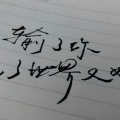 输了你
了世界又如